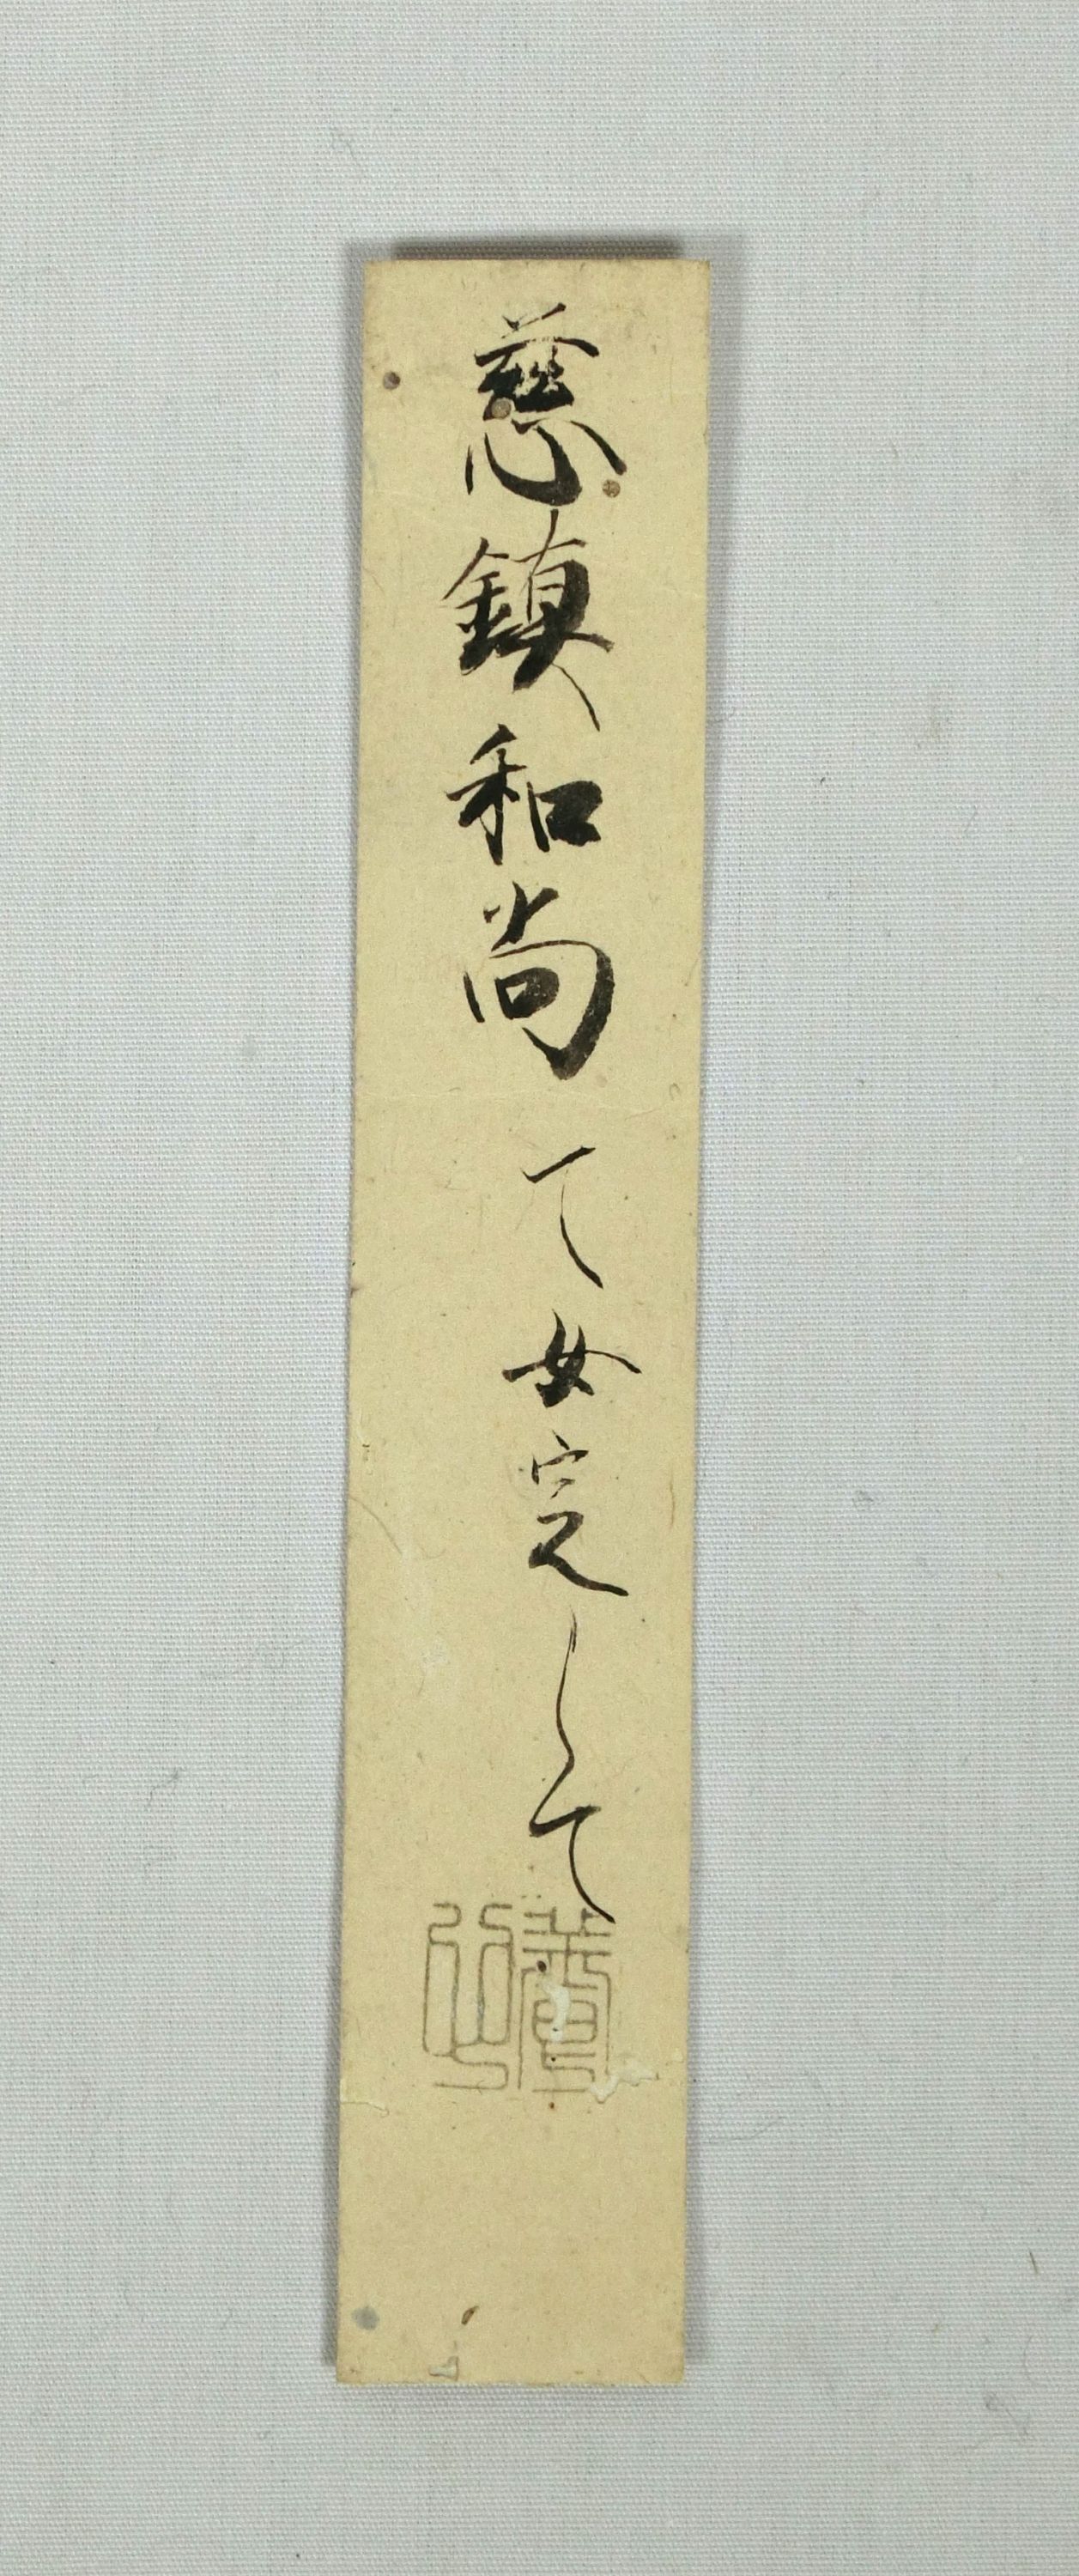 慈鎮和尚 て女定して